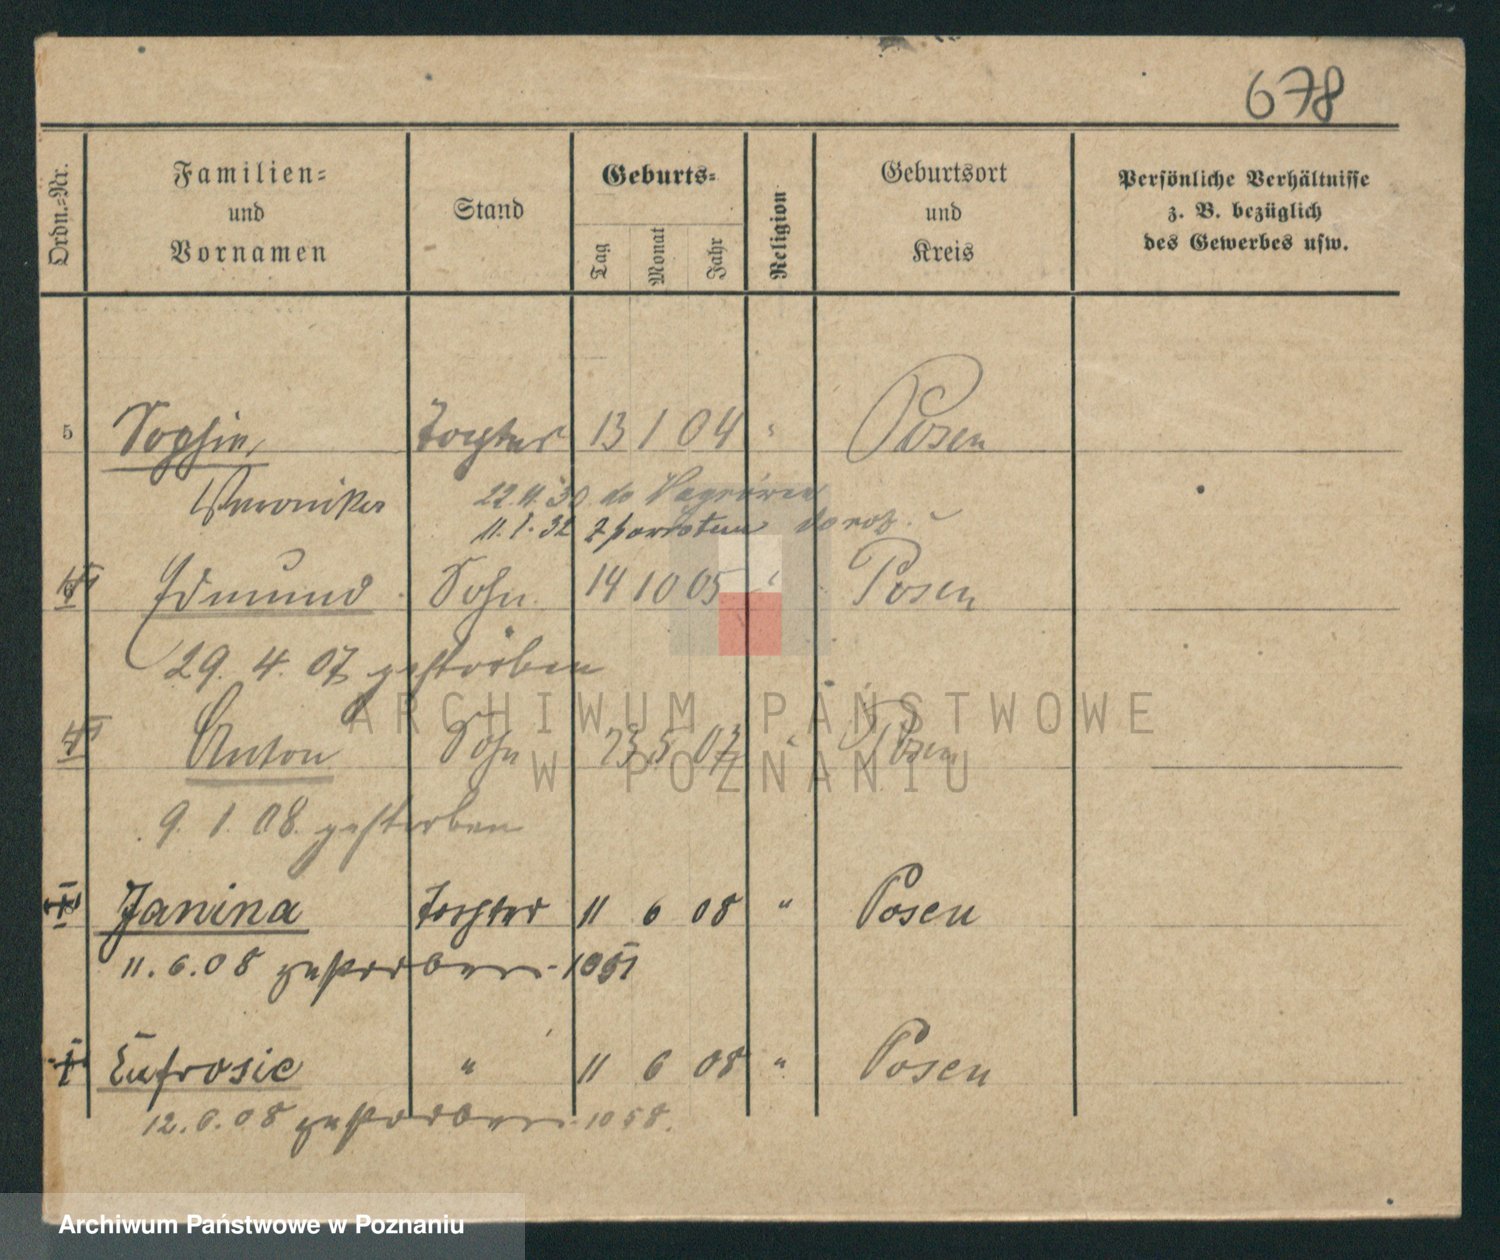 678
Ordn.=Nr.
Familien=
und
Vornamen
Stand
Geburts=
Tag
Monat
Jahr
Religion
Geburtsort
und
Kreis
Persönliche Verhältnisse
z. B. bezüglich
des Gewerbes usw.
5 Sophie, Tochter 13 1 04 " Posen
Veronika 22.11.30 do
11.1.32 z powrotem
Edmund Sohn 14 10 05 " Posen
29. 4. 07 gestorben
Anton Sohn 23 5 07 " Posen
9. 1. 08. gestorben
Janina Tochter 11 6 08 " Posen
11.6.08 gestorben 1051
Eufrosie " 11 6 08 " Posen
12.6.08 gestorben 1058.
ARCHIWUM PAŃSTWOWE
W POZNANIU
Archiwum Państwowe w Poznaniu